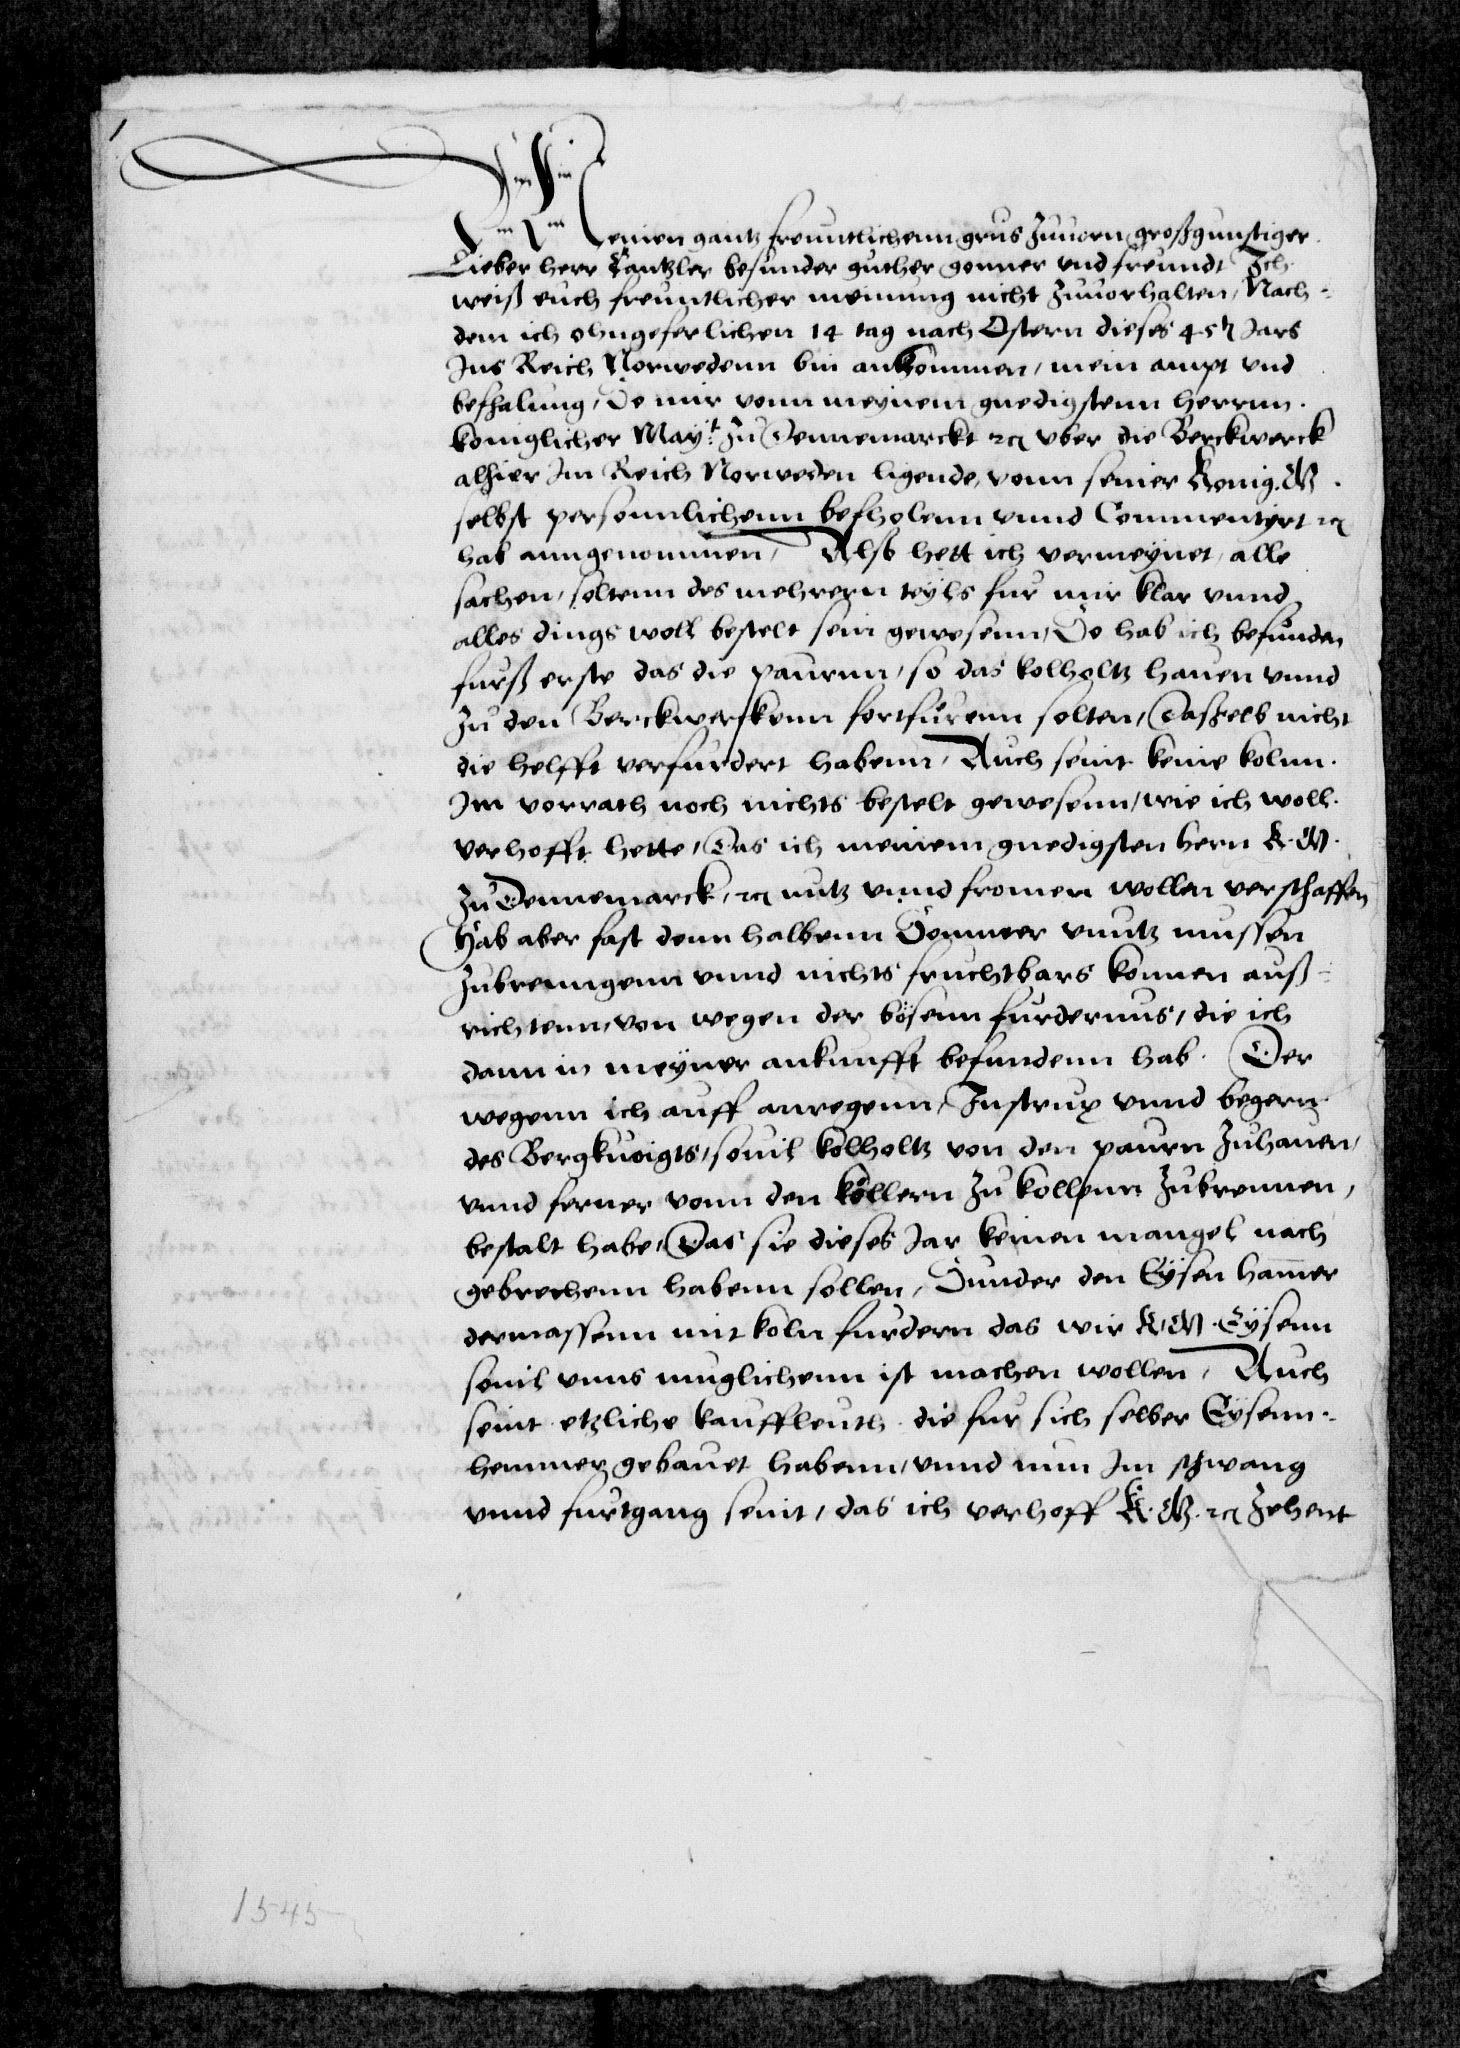 Meinen gantz freuntlichenn grus zuuorn großgunstiger
Lieber herr Cantzler besunder guther gonner vnd freundt Ich
weiß euch freuntlicher meinung nicht zuuorhalten, Nach-
dem ich ohngeferlichen 14 tag nach Ostern dieses 45ten Jars
Ins Reich Norwedenn bin ankommen, mein ampt vnd
befhalung, So mir vonn meynem gnedigstenn herrnn
koniglicher Mayt. zu Dennemarckt etc vber die Berckwerck
alhier Im Reich Norweden ligende, vonn seiner Konig. M.
selbst personnlichenn befholenn vnnd Commentirt etc
hab anngenommen, Alß hett ich vermeynet, alle
sachen, soltenn des mehrern teyls fur mir klar vnnd
alles dings woll bestelt sein gewesenn, So hab ich befunden
furß erste das die paurnn, so das kolholtz hauen vnnd
zu den Berckwerkenn fortfurenn solten, Dasselb nicht
die helfft verfurdert habenn, Auch seint keine kolnn
Im vorrath noch nichts bestelt gewesenn, wie ich woll
verhofft hette, Das ich meinem gnedigsten hern K. M.
zu Dennemarck, etc nutz vnnd fromen wollen verschaffen
Hab aber fast denn halbenn Sommer vnutz mussen
zubrenngenn vnnd nichts fruchtbars konnen auß-
richtenn, von wegen der bösenn furdernus, die ich
dann in meyner ankunfft befundenn hab. Der
wegenn ich auff anregenn, Instrux vnnd begern
des Bergkuoigts, souil kolholtz von den paurn zuhauen,
vnnd ferner vonn den köllern zu kollenn zubrennen,
bestalt habe, Das sie dieses Jar keinen mangel nach
gebrechenn habenn sollen, Sunder den Eysen hammer
dermassenn mit koln furdern das wir K. M. Eysenn
souil vnns muglichenn ist machen wollen, Auch
seint etzliche kauffleuth die fur sich selber Eysenn-
hemmer gebauet habenn, vnnd nun Im schwang
vnnd furtgang seint, das ich verhoff K. M. etc zehent
1545